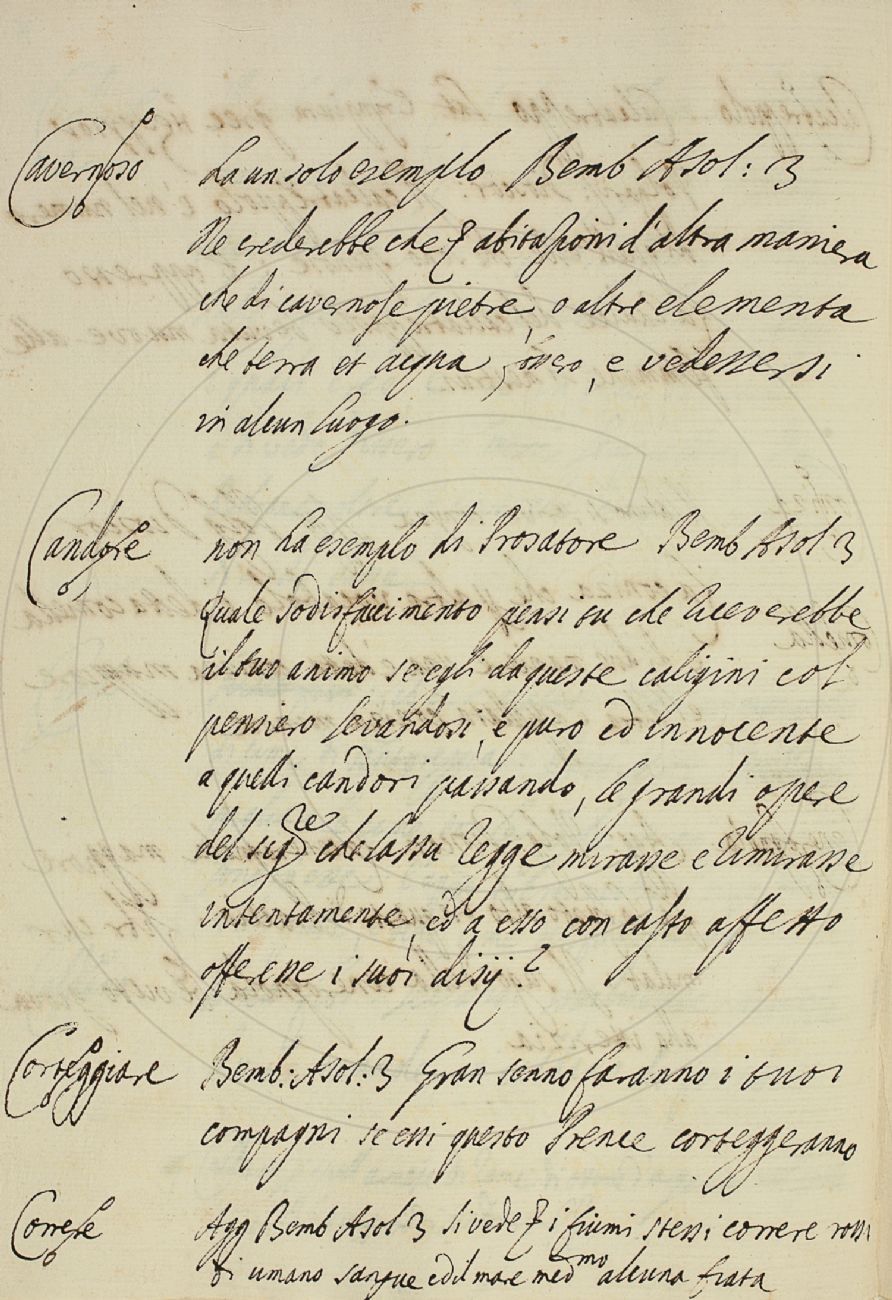 Cavernoso ha un solo esempio Bemb Asol: 3
Ne crederebbe che ꝑ abitazioni d'altra maniera
che di cavernose pietre, o altre elementa
che terra et acqua fossero, e vedessersi
in alcun luogo.
Candore non ha esempio di Prosatore Bemb Asol 3
Quale sodisfacimento pensi tu che riceverebbe
il tuo animo se egli da queste caligini col
pensiero levandosi, e puro ed innocente
a quelli candori passando, le grandi opere
del sig.re che lassu regge mirasse e rimirasse
intentamente, ed a esso con casto affetto
offeresse i suoi disij?
Corteggiare Bemb: Asol: 3 Gran senno faranno i tuoi
compagni se essi questo Prence corteggeranno
Correre Agg Bemb Asol 3 si vede ꝑ i fiumi stessi correre rossi
di umano sangue ed il mare med.mo alcuna fiata